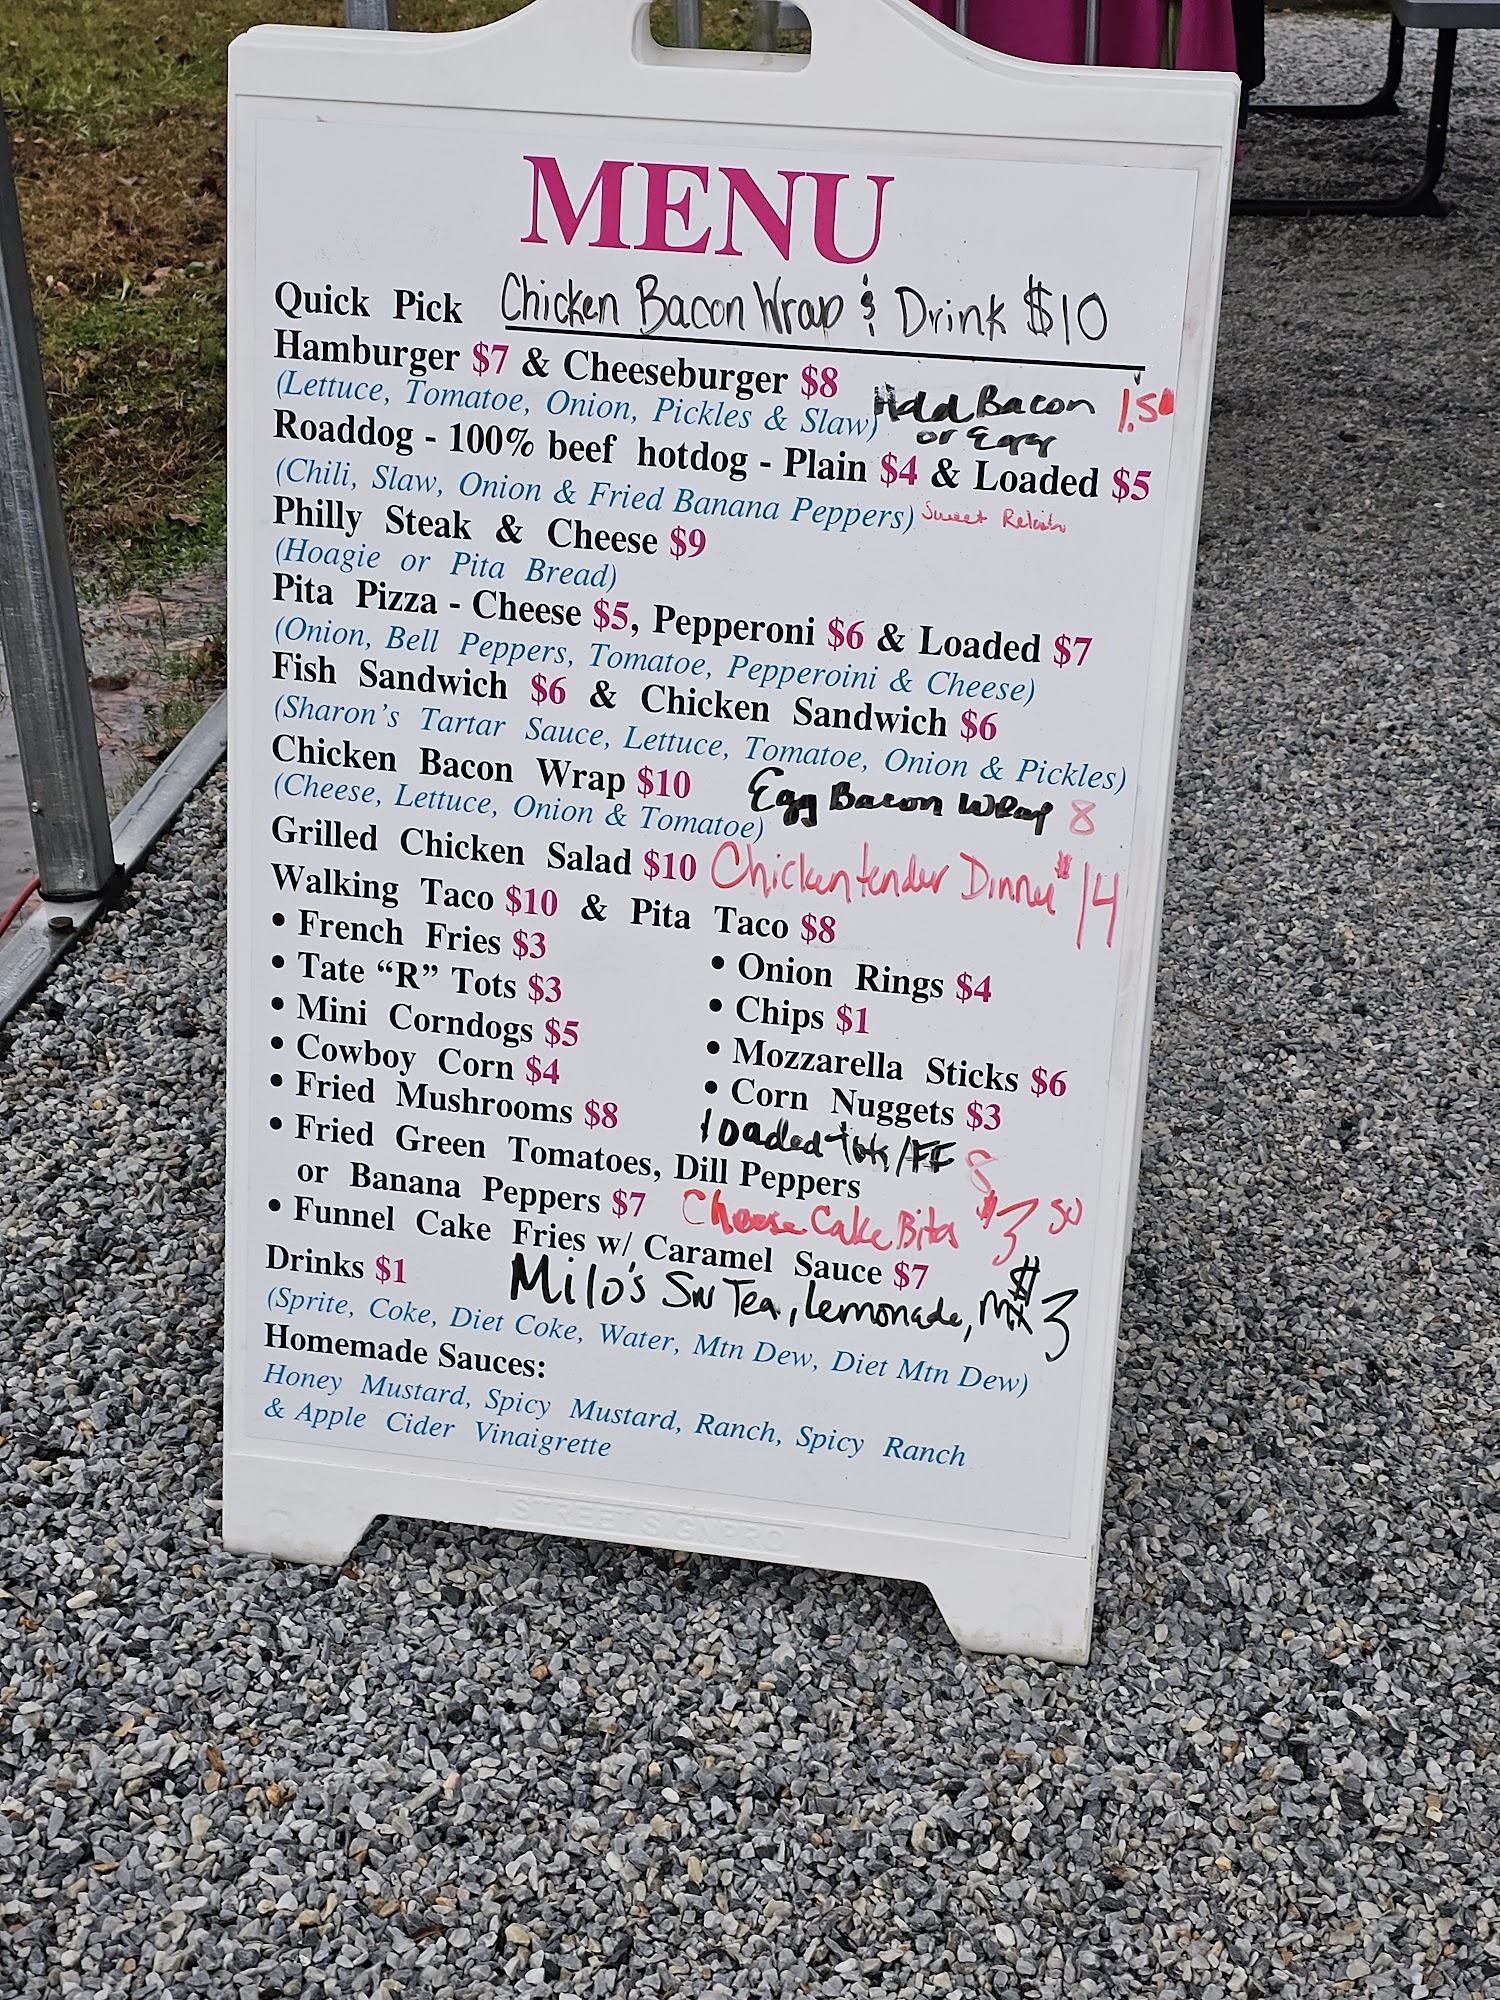 MENU
Quick Pick Chicken Bacon Wrap & Drink $10
Hamburger $7 & Cheeseburger $8
(Lettuce, Tomatoe, Onion, Pickles & Slaw) Add Bacon 1.50
or Egg
Roaddog - 100% beef hotdog - Plain $4 & Loaded $5
(Chili, Slaw, Onion & Fried Banana Peppers) Sweet Relish
Philly Steak & Cheese $9
(Hoagie or Pita Bread)
Pita Pizza - Cheese $5, Pepperoni $6 & Loaded $7
(Onion, Bell Peppers, Tomatoe, Pepperoini & Cheese)
Fish Sandwich $6 & Chicken Sandwich $6
(Sharon's Tartar Sauce, Lettuce, Tomatoe, Onion & Pickles)
Chicken Bacon Wrap $10 Egg Bacon Wrap 8
(Cheese, Lettuce, Onion & Tomatoe)
Grilled Chicken Salad $10 Chicken tender Dinner $14
Walking Taco $10 & Pita Taco $8
• French Fries $3
• Onion Rings $4
• Tate "R" Tots $3
• Chips $1
• Mini Corndogs $5
• Mozzarella Sticks $6
• Cowboy Corn $4
• Corn Nuggets $3
• Fried Mushrooms $8
Loaded Tots/FF 8
• Fried Green Tomatoes, Dill Peppers
or Banana Peppers $7 Cheese Cake Bites $3 50
• Funnel Cake Fries w/ Caramel Sauce $7
Drinks $1 Milo's Sw Tea, Lemonade, Mix $3
(Sprite, Coke, Diet Coke, Water, Mtn Dew, Diet Mtn Dew)
Homemade Sauces:
Honey Mustard, Spicy Mustard, Ranch, Spicy Ranch
& Apple Cider Vinaigrette
STREET SIGN PRO